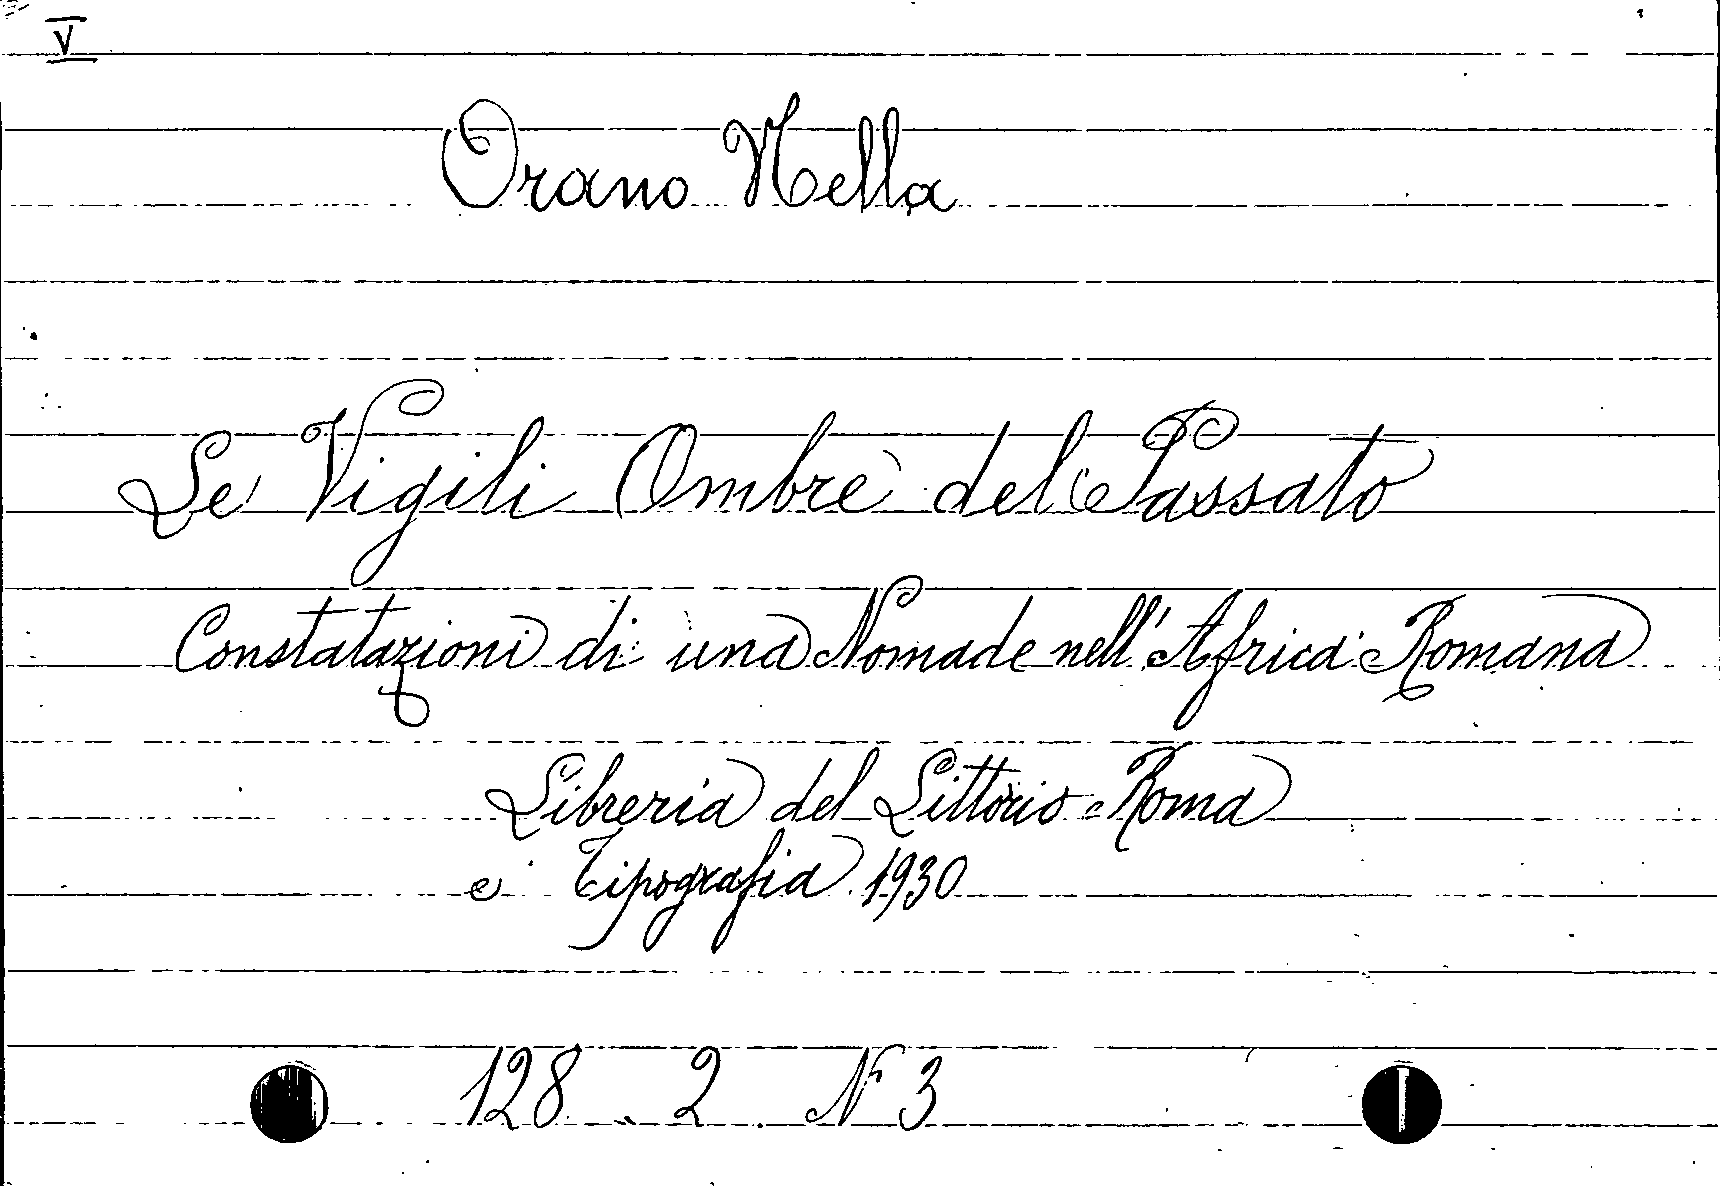 V
Orano Nella
Le Vigili Ombre del Passato
Constatazioni di una Nomade nell'Africa Romana
Libreria del Littorio - Roma
e Tipografia 1930
128 . 2 . N 3